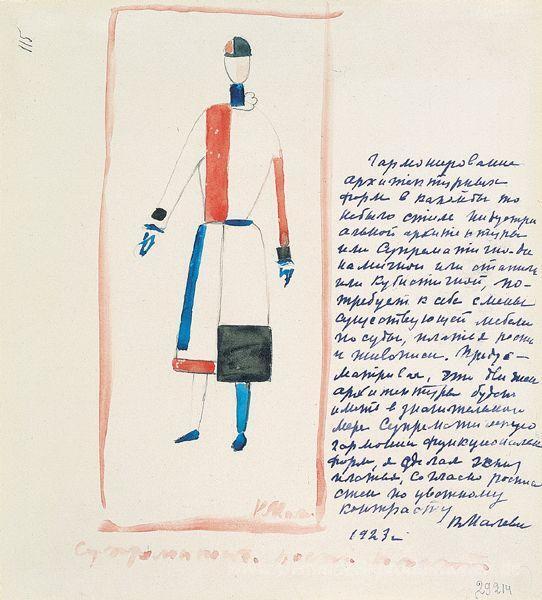 115
Гармонирование
архитектурных
форм в какой бы то
небыло стиле индустри
альной архитектуры
или Супрематично-ди
намичной или статич
или Кубистичной, по-
требует к себе смены
существующей мебели
посуды, платья росписи
и живописи. Преду-
матривая, что движен
архитектуры будет
иметь в значительной
мере Супрематическую
гармонию функциональн
форм, я сделал эскиз
платья, согласно росписи
стен по цветному
контрасту
К Малеви
1923 г.
К Мал
Супрематич.
29214